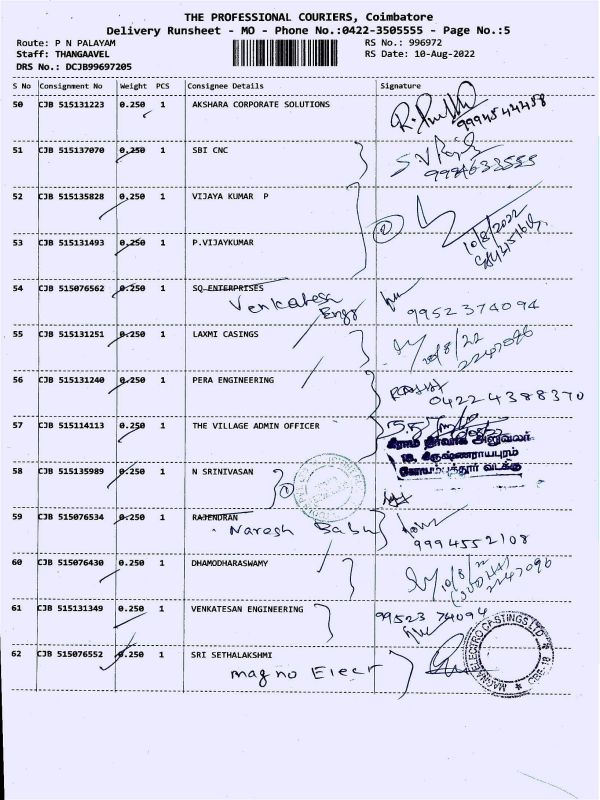 THE PROFESSIONAL COURIERS, Coimbatore
Delivery Runsheet - MO - Phone No.:0422-3505555 - Page No.:5
Route: P N PALAYAM
RS No.: 996972
Staff: THANGAAVEL
RS Date: 10-Aug-2022
DRS No.: DCJB99697205
S No Consignment No Weight PCS Consignee Details Signature
50 CJB 515131223 0.250 1 AKSHARA CORPORATE SOLUTIONS
9994544458
51 CJB 515137070 0.250 1 SBI CNC
9994633555
52 CJB 515135828 0.250 1 VIJAYA KUMAR P
2
10/8/2022
53 CJB 515131493 0.250 1 P.VIJAYKUMAR
54 CJB 515076562 0.250 1 SQ ENTERPRISES
Venkatesh
Engg
9952374094
55 CJB 515131251 0.250 1 LAXMI CASINGS
10/8/22
2247096
56 CJB 515131240 0.250 1 PERA ENGINEERING
04224388370
57 CJB 515114113 0.250 1 THE VILLAGE ADMIN OFFICER
கிராம நிர்வாக அலுவலர்
கோயம்புத்தூர் வடக்கு
58 CJB 515135989 0.250 1 N SRINIVASAN
59 CJB 515076534 0.250 1 RAJENDRAN
Naresh Babu
9994552108
60 CJB 515076430 0.250 1 DHAMODHARASWAMY
10/8/22
2247096
61 CJB 515131349 0.250 1 VENKATESAN ENGINEERING
99523 74094
62 CJB 515076552 0.250 1 SRI SETHALAKSHMI
magno Elecr
MAGNAELECTRO CASTINGS LTD
CBE-18